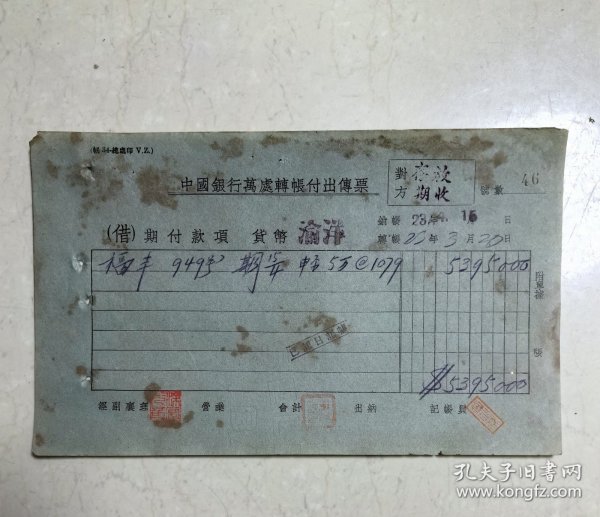 (帳-34-總處印 V.Z.)
中國銀行萬處轉帳付出傳票
對方 存放 期收
號數 46
(借) 期付款項 貨幣 渝洋
給帳 23年 15 日
轉帳 23年3月20日
福丰 949号 期 申 5万@1079 5395000
附單據
張
$5395000
經副襄理
營業
會計
出納
記帳員
孔夫子旧书网
www.kongfz.com